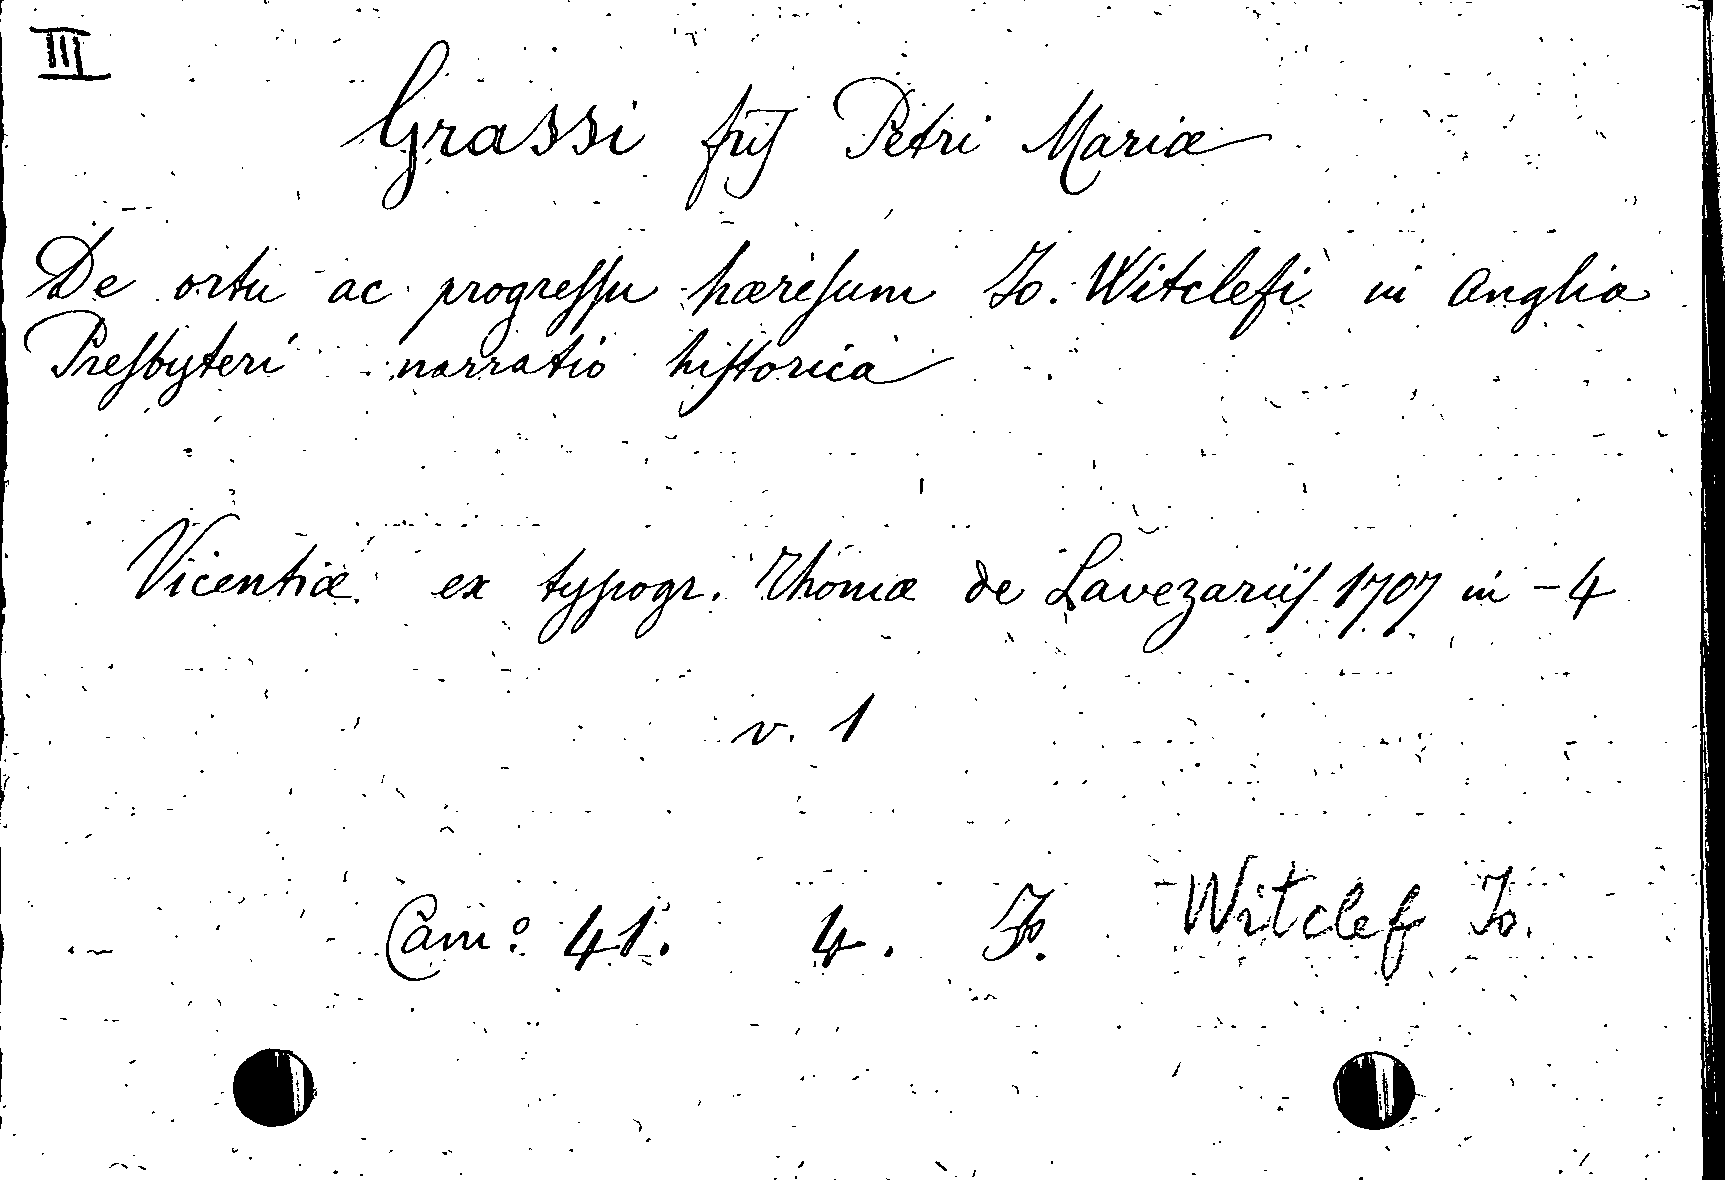 III
Grassi frĩs Petri Mariæ
De ortu ac progreſſu hæreſum Jo. Witclefi in Anglia
Preſbyteri narratio hiſtorica
Vicentiæ ex typogr. Thomæ de Lavezariiſ 1707 in-4
v. 1
Cam.º 41. 4. Witclef Jo.